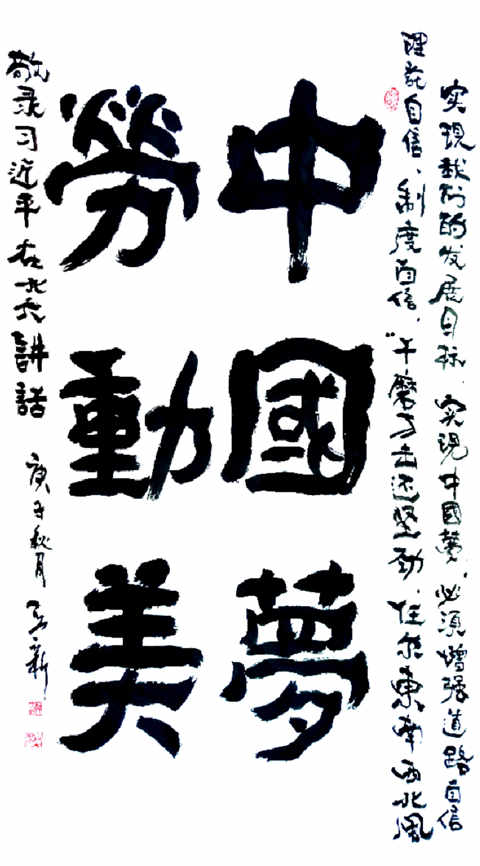 实现我们的发展目标、实现中国夢、必须增强道路自信
理论自信、制度自信、“千磨万击还坚劲、任尔东南西北风
中國夢
勞動美
敬录习近平在人大讲话
庚子秋月